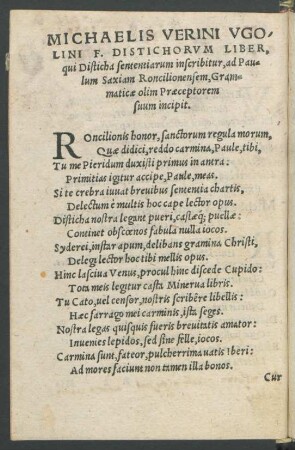 MICHAELIS VERINI VGO-
LINI F. DISTICHORVM LIBER,
qui Disticha sententiarum inscribitur, ad Pau-
lum Saxiam Roncilionensem, Gram-
maticæ olim Præceptorem
suum incipit.
ROncilionis honor, sanctorum regula morum,
Quæ didici, reddo carmina, Paule, tibi,
Tu me Pieridum duxisti primus in antra:
Primitias igitur accipe, Paule, meas.
Si te crebra iuuat breuibus sententia chartis,
Delectum è multis hoc cape lector opus.
Disticha nostra legant pueri, castæq; puellæ:
Continet obscœnos fabula nulla iocos.
Syderei, instar apum, delibans gramina Christi,
Delegi lector hoc tibi mellis opus.
Hinc lasciua Venus, procul hinc discede Cupido:
Tota meis legitur casta Minerua libris.
Tu Cato, uel censor, nostris scribêre libellis:
Hæc farrago mei carminis, ista seges.
Nostra legas quisquis fueris breuitatis amator:
Inuenies lepidos, sed sine felle, iocos.
Carmina sunt, fateor, pulcherrima uatis Iberi:
Ad mores faciunt non tamen illa bonos.
Cur